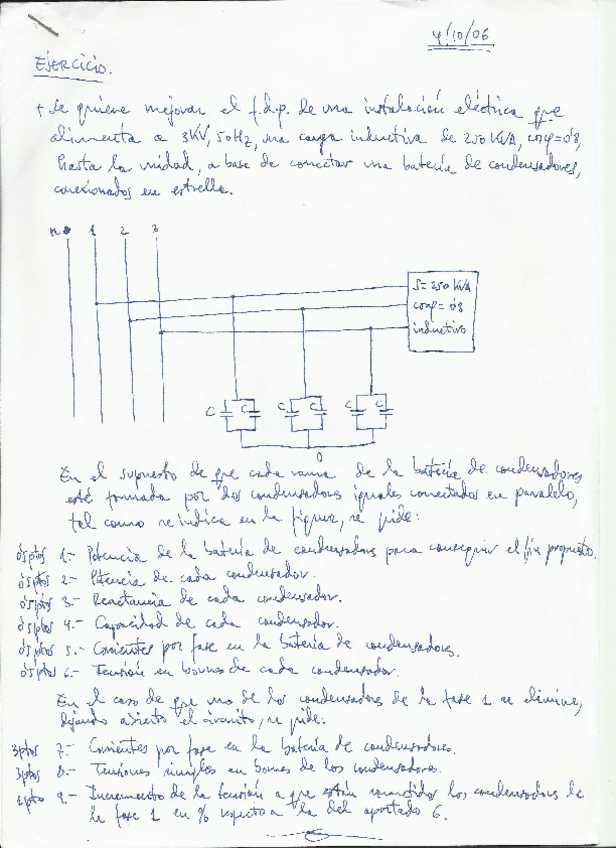 4/10/06
EJERCICIO.
+ Se quiere mejorar el f.d.p. de una instalación eléctrica que
alimenta a 3KV, 50Hz, una carga inductiva de 250 KVA, cosφ=0'8,
hasta la unidad, a base de conectar una batería de condensadores,
conexionados en estrella.
n 1 2 3
S=250 KVA
cosφ=0'8
inductivo
C C C C C C
0
En el supuesto de que cada rama de la batería de condensadores
esté formada por dos condensadores iguales conectados en paralelo,
tal como se indica en la figura, se pide:
0'5ptos 1.- Potencia de la batería de condensadores para conseguir el fin propuesto.
0'5ptos 2.- Potencia de cada condensador.
0'5ptos 3.- Reactancia de cada condensador.
0'5ptos 4.- Capacidad de cada condensador.
0'5ptos 5.- Corrientes por fase en la batería de condensadores.
0'5ptos 6.- Tensión en bornes de cada condensador.
En el caso de que uno de los condensadores de la fase 1 se elimine,
dejando abierto el circuito, se pide:
3ptos 7.- Corrientes por fase en la batería de condensadores.
3ptos 8.- Tensiones simples en bornes de los condensadores.
1pto 9.- Incremento de la tensión a que están sometidos los condensadores de
la fase 1 en % respecto a la del apartado 6.